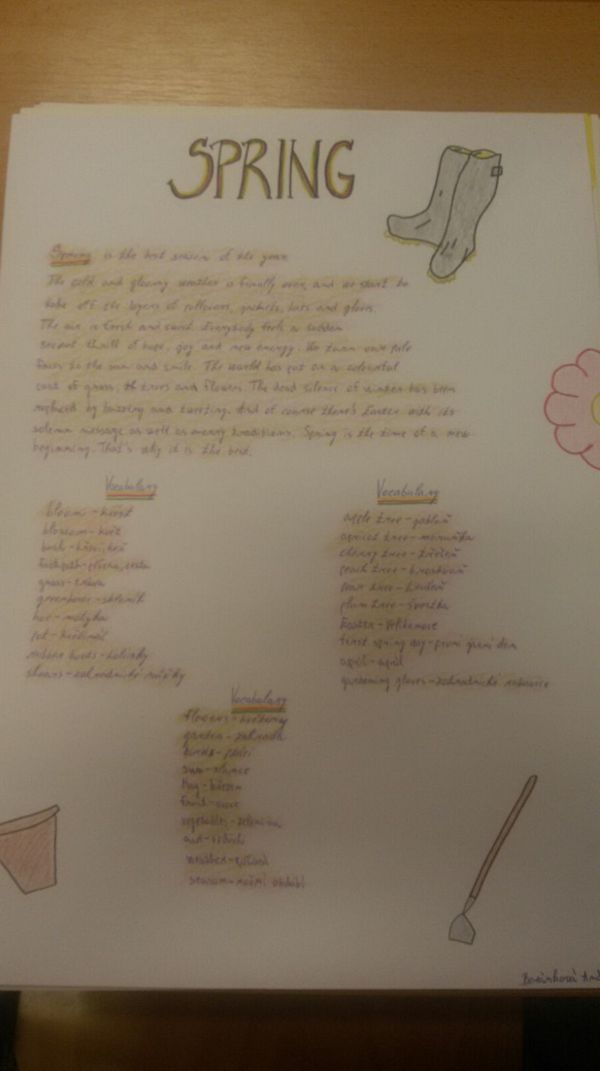 SPRING
Spring is the best season of the year.
The cold and gloomy weather is finally over, and we start to
take off the layers of pullovers, jackets, hats and gloves.
The air is fresh and sweet. Everybody feels a sudden
secret thrill of hope, joy and new energy. We turn our pale
faces to the sun and smile. The world has put on a colourful
coat of grass, trees and flowers. The dead silence of winter has been
replaced by buzzing and tweeting. And of course there's Easter with its
solemn message as well as merry traditions. Spring is the time of a new
beginning. That's why it is the best.
Vocabulary
bloom - kvést
blossom - květ
bush - křoví, keř
footpath - pěšina, cesta
grass - tráva
greenhouse - skleník
hoe - motyka
pot - květináč
rubber boots - holínky
shears - zahradnické nůžky
Vocabulary
apple tree - jabloň
apricot tree - meruňka
cherry tree - třešeň
peach tree - broskvoň
pear tree - hrušeň
plum tree - švestka
Easter - Velikonoce
first spring day - první jarní den
april - april
gardening gloves - zahradnické rukavice
Vocabulary
flowers - květiny
garden - zahrada
birds - ptáci
sun - slunce
May -
fruit - ovoce
vegetables - zelenina
season - roční období